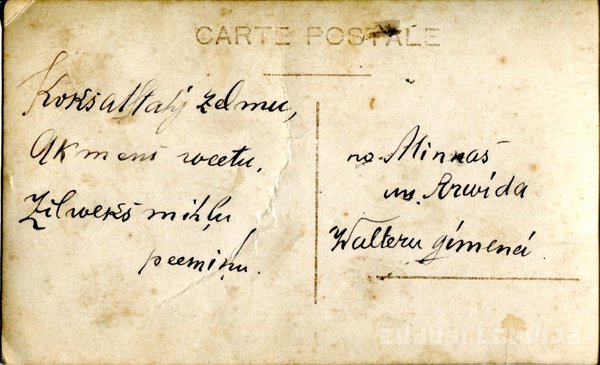 CARTE POSTALE
Koks atstahj zelmu,
Akmens weetu,
Zilweks mihļu
peemiņu.
no Minnas
un Arwida
Walteru ģimenē.
zudusi Latvija